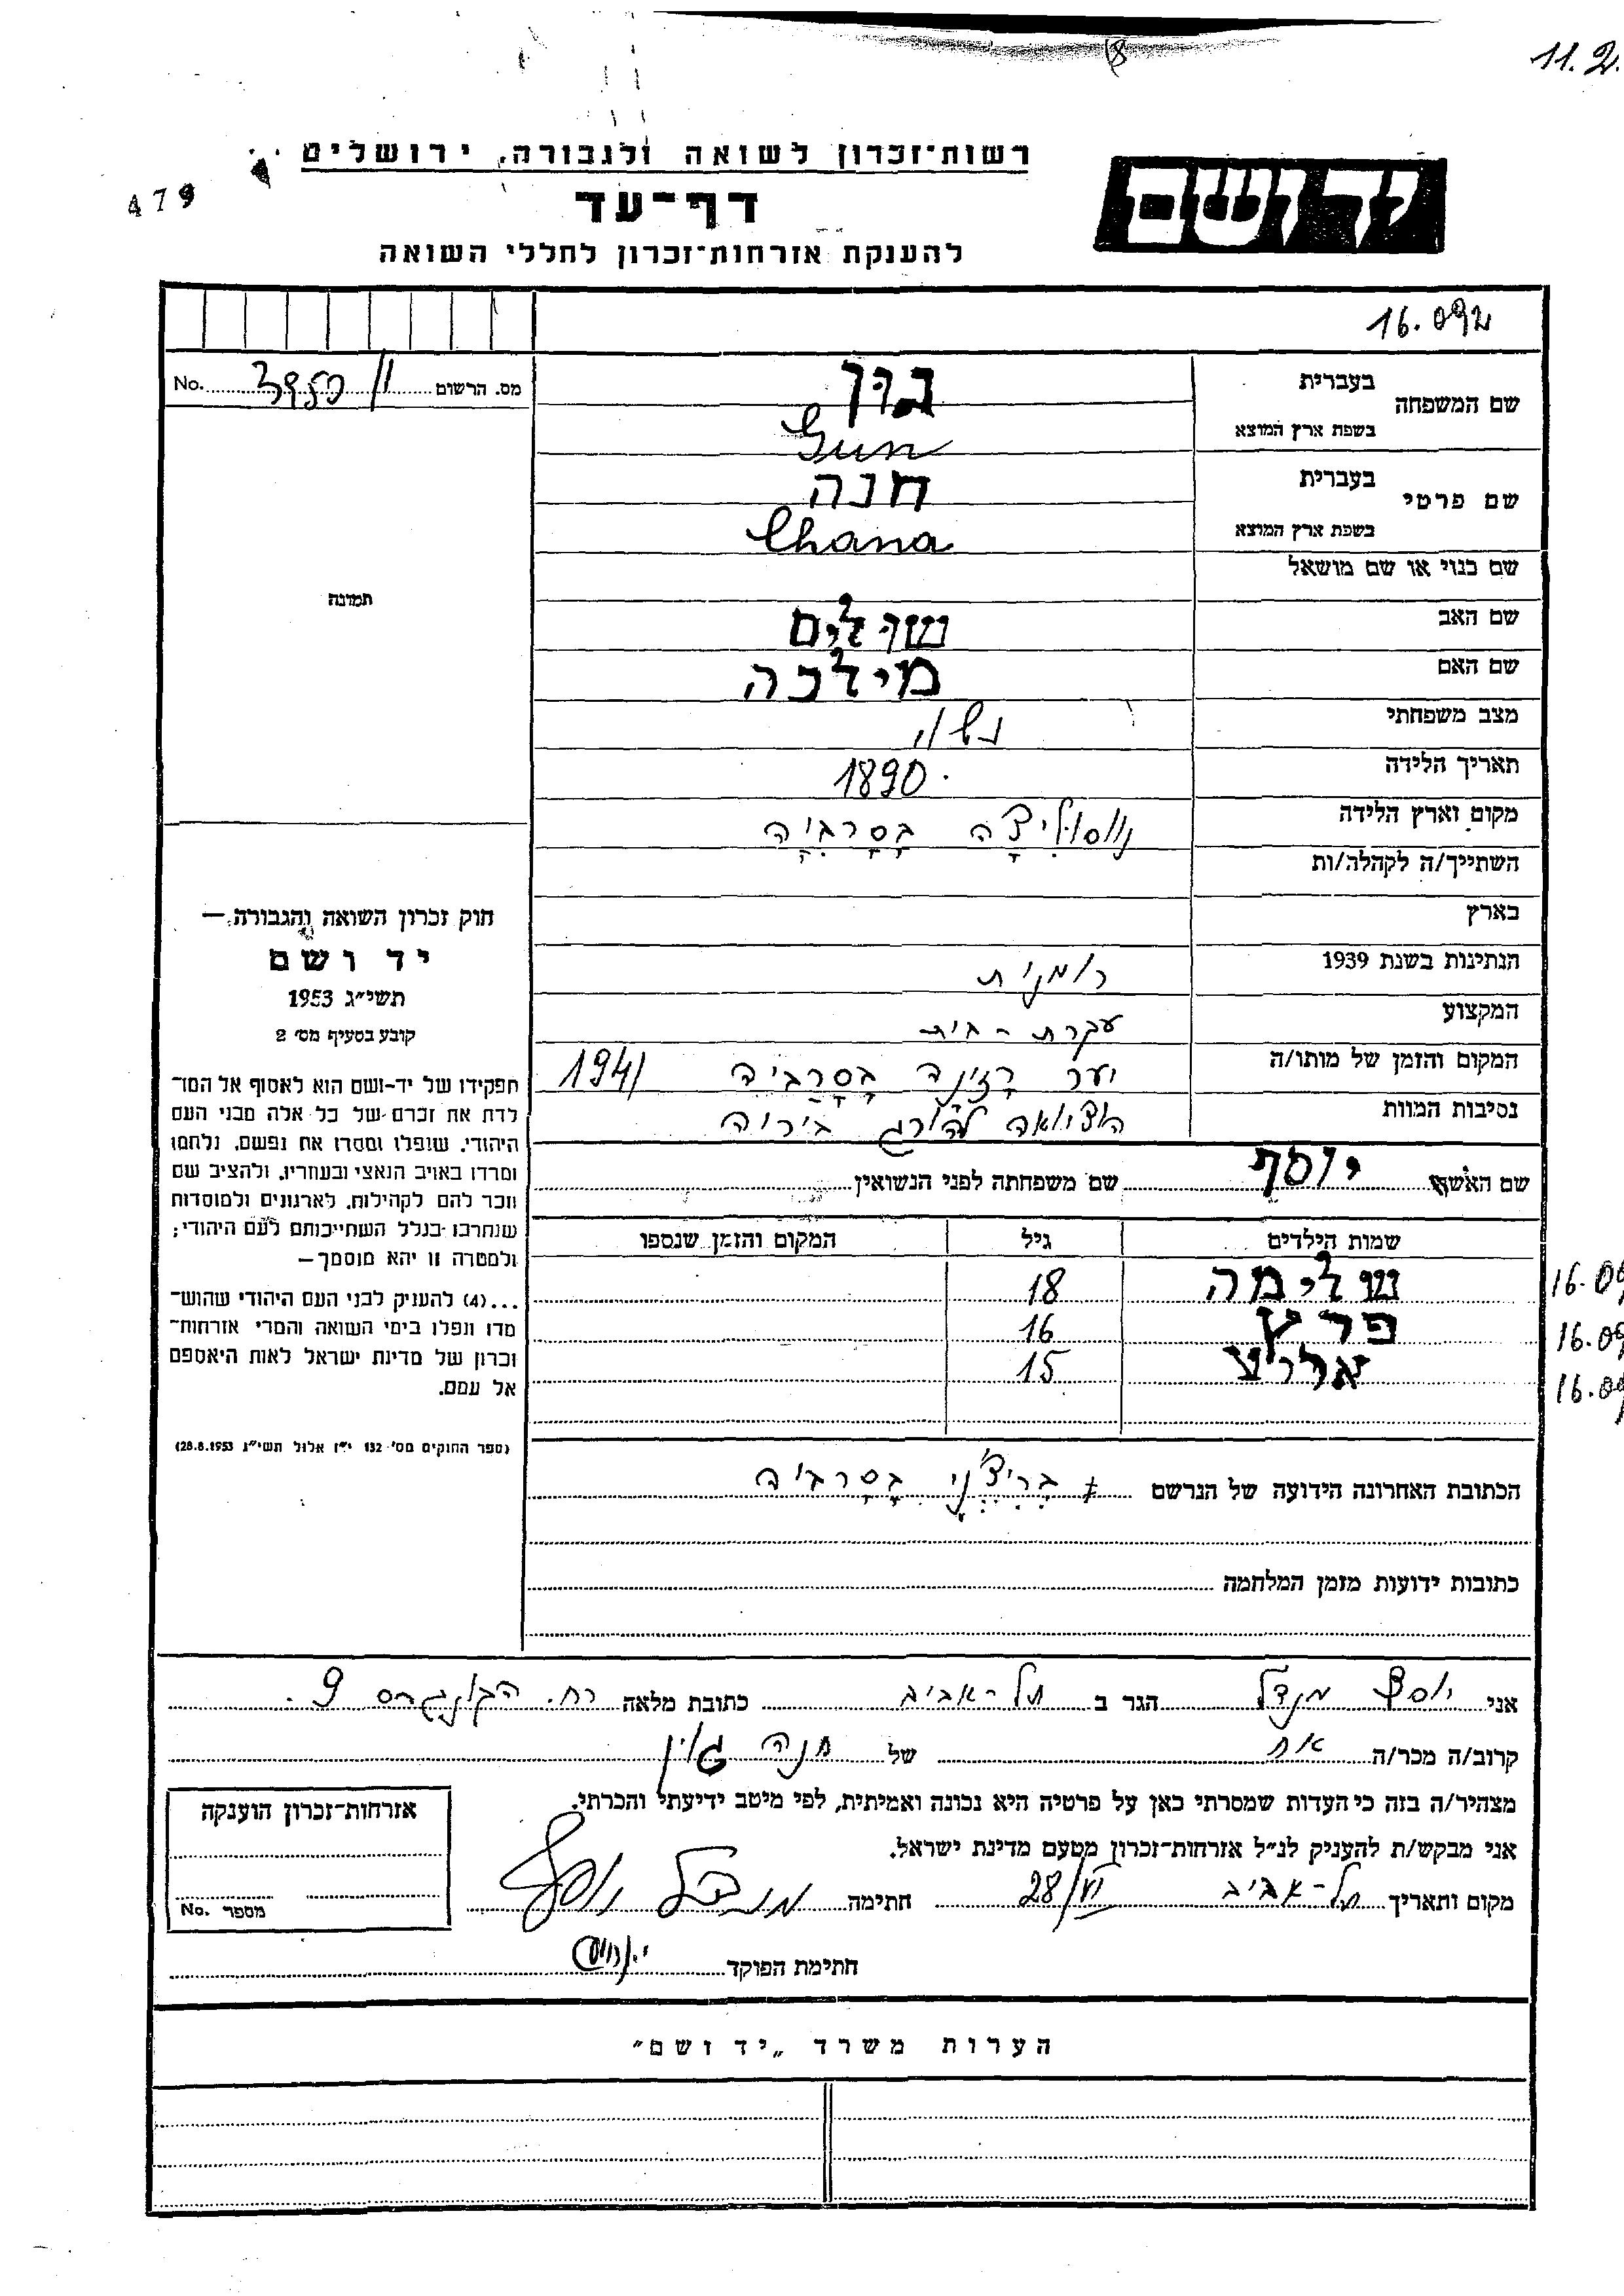 11.2.
רשות־זכרון לשואה ולגבורה, ירושלים
יד ושם
דף־עד
479
להענקת אזרחות־זכרון לחללי השואה
16.092
No. 3950/11 מס. הרשום
שם המשפחה בעברית גון
בשפת ארץ המוצא Gun
שם פרטי בעברית חנה
בשפת ארץ המוצא Chana
שם כנוי או שם מושאל
תמונה
שם האב שולים
שם האם מילכה
מצב משפחתי נשוי
תאריך הלידה 1890
מקום וארץ הלידה נווסוליצה בסרביה
השתייך/ה לקהלה/ות
בארץ
הנתינות בשנת 1939 רומנית
המקצוע עקרת-בית
המקום והזמן של מותו/ה יער רזינה בסרביה 1941
נסיבות המוות הוציאה להורג ביריה
חוק זכרון השואה והגבורה —
יד ושם
תשי״ג 1953
קובע בסעיף מס׳ 2
תפקידו של יד-ושם הוא לאסוף אל המו־
לדת את זכרם של כל אלה מבני העם
היהודי, שנפלו ומסרו את נפשם, נלחמו
ומרדו באויב הנאצי ובעוזריו, ולהציב שם
וזכר להם לקהילות, לארגונים ולמוסדות
שנחרבו בגלל השתייכותם לעם היהודי;
ולמטרה זו יהא מוסמך—
...(4) להעניק לבני העם היהודי שהוש־
מדו ונפלו בימי השואה והמרי אזרחות־
זכרון של מדינת ישראל לאות היאספם
אל עמם.
(ספר החוקים מס׳ 132 י״ז אלול תשי״ג 28.8.1953)
שם האשה יוסף שם משפחתה לפני הנשואין
שמות הילדים גיל המקום והזמן שנספו
שלימה 18
פרץ 16
15
הכתובת האחרונה הידועה של הנרשם בריצ׳ני בסרביה
כתובות ידועות מזמן המלחמה
אני יוסף מנדל הגר ב תל-אביב כתובת מלאה רח. הקונגרס 9.
קרוב/ה מכר/ה אח של חנה גון
מצהיר/ה בזה כי העדות שמסרתי כאן על פרטיה היא נכונה ואמיתית, לפי מיטב ידיעתי והכרתי.
אני מבקש/ת להעניק לנ״ל אזרחות־זכרון מטעם מדינת ישראל.
מקום ותאריך תל-אביב 28/VI חתימה מנדל יוסף
חתימת הפוקד
אזרחות־זכרון הוענקה
מספר No.
הערות משרד „יד ושם״